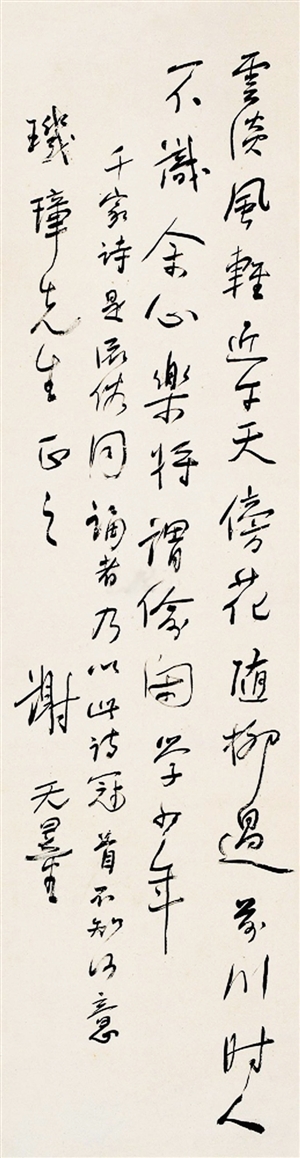 雲淡風輕近午天傍花随柳過前川时人
不識余心樂将謂偷闲学少年
千家诗是流俗同誦者乃以此诗冠首不知何意
璣璋先生正之 謝无量